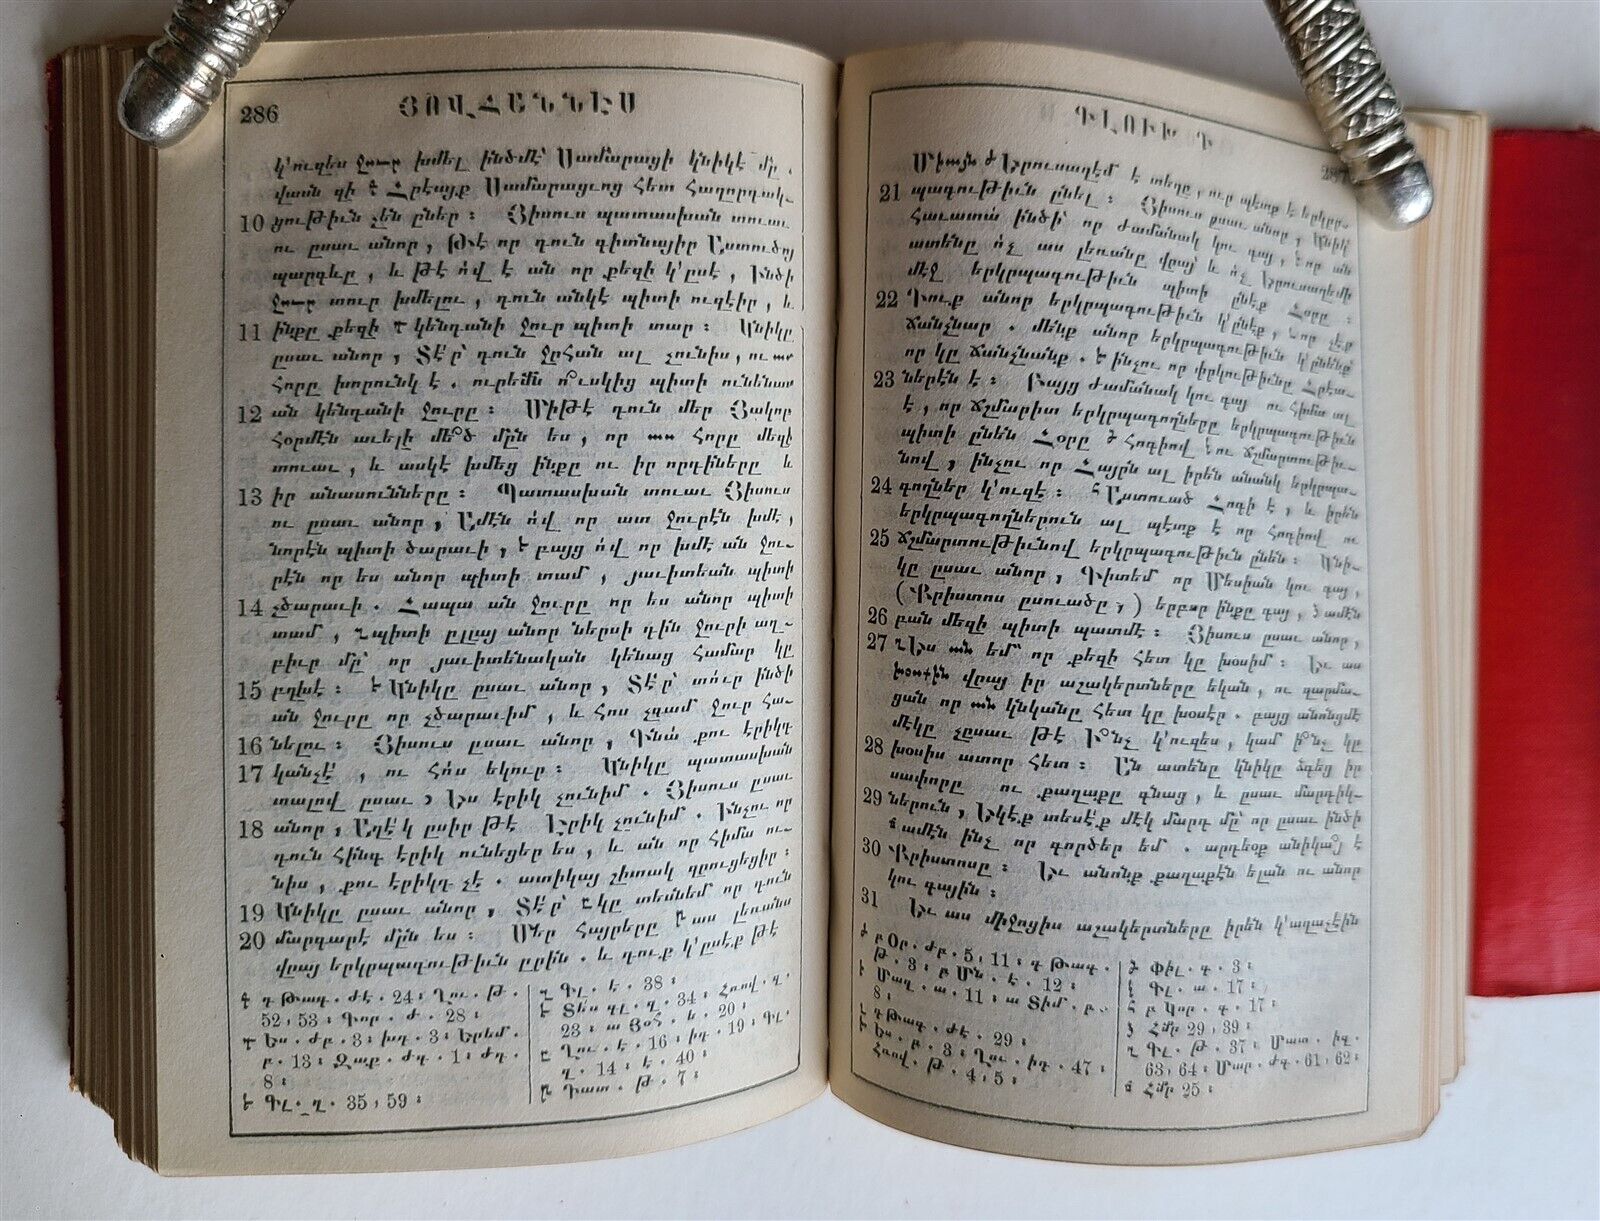 286 ՅՈՎՀԱՆՆԷՍ
կ՚ուզես ջուր խմել ինծմէ՝ Սամարացի կնիկէ մը .
վասն զի Հրէայք Սամարացւոց հետ հաղորդակ-
10 ցութիւն չեն ըներ ։ Յիսուս պատասխան տուաւ
ու ըսաւ անոր , Թէ որ դուն գիտնայիր Աստուծոյ
պարգեւը , և թէ ո՛վ է ան որ քեզի կ՚ըսէ , Ինծի
ջուր տուր խմելու , դուն անկէ պիտի ուզէիր , և
11 ինքը քեզի կենդանի ջուր պիտի տար ։ Կնիկը
ըսաւ անոր , Տէ՛ր՝ դուն ջրհան ալ չունիս , ու
հորը խորունկ է . ուրեմն ո՞ւսկից պիտի ունենաս
12 ան կենդանի ջուրը ։ Միթէ դուն մեր Յակոբ
հօրմէն աւելի մե՞ծ մըն ես , որ աս հորը մեզի
տուաւ , և ասկէ խմեց ինքը ու իր որդիները և
13 իր անասունները ։ Պատասխան տուաւ Յիսուս
ու ըսաւ անոր , Ամէն ո՛վ որ ատ ջուրէն խմէ ,
նորէն պիտի ծարաւի , բայց ո՛վ որ խմէ ան ջու-
րէն որ ես անոր պիտի տամ , յաւիտեան պիտի
14 չծարաւի . Հապա ան ջուրը որ ես անոր պիտի
տամ , պիտի ըլլայ անոր ներսի դին ջուրի աղ-
բիւր մը՝ որ յաւիտենական կենաց համար կը
15 բղխէ ։ Կնիկը ըսաւ անոր , Տէ՛ր՝ տո՛ւր ինծի
ան ջուրը որ չծարաւիմ , և հոս չգամ ջուր հա-
16 նելու ։ Յիսուս ըսաւ անոր , Գնա՛ քու էրիկդ
17 կանչէ՛ , ու հո՛ս եկուր ։ Կնիկը պատասխան
տալով ըսաւ , Ես էրիկ չունիմ . Յիսուս ըսաւ
18 անոր , Աղէ՛կ ըսիր թէ Էրիկ չունիմ . Ինչու որ
դուն հինգ էրիկ ունեցեր ես , և ան որ հիմա ու-
նիս , քու էրիկդ չէ . ատիկայ շիտակ զրուցեցիր ։
19 Կնիկը ըսաւ անոր , Տէ՛ր՝ կը տեսնեմ որ դուն
20 մարգարէ մըն ես ։ Մեր հայրերը աս լեռանս
վրայ երկրպագութիւն ըրին . և դուք կ՚ըսէք թէ
դ Թագ . ժէ . 24 ։ Ղու . թ .
52 , 53 ։ Գոր . ժ . 28 ։
Ես . ժբ . 3 ։ խդ . 3 ։ Երեմ .
բ . 13 ։ Զաք . ժգ . 1 ։ ժդ .
8 ։
Գլ . զ . 35 , 59 ։
Գլ . է . 38 ։
Տես գլ . զ . 34 ։ Հռով . զ .
23 ։ ա ՅՕՀ . ե . 20 ։
Ղու . է . 16 ։ իդ . 19 ։ Գլ .
զ . 14 ։ է . 40 ։
Դատ . թ . 7 ։
ԳԼՈՒԽ Դ
Միայն Երուսաղէմ է տեղը , ուր պէտք է երկըր-
21 պագութիւն ընել ։ Յիսուս ըսաւ անոր , Կնիկ՝
հաւատա՛ ինծի՝ որ ժամանակ կու գայ , որ ան
ատենը ո՛չ աս լեռանը վրայ՝ և ո՛չ Երուսաղէմի
մէջ երկրպագութիւն պիտի ընէք Հօրը ։
22 Դուք անոր երկրպագութիւն կ՚ընէք , որ չէք
ճանչնար . մենք անոր երկրպագութիւն կ՚ընենք՝
որ կը ճանչնանք . ինչու որ փրկութիւնը Հրէա-
23 ներէն է ։ Բայց ժամանակ կու գայ ու հիմա ալ
է , որ ճշմարիտ երկրպագողները երկրպագութիւն
պիտի ընեն Հօրը հոգիով ու ճշմարտութիւ-
նով , ինչու որ Հայրն ալ իրեն անանկ երկրպա-
24 գողներ կ՚ուզէ ։ Աստուած Հոգի է , և իրեն
երկրպագողներուն ալ պէտք է որ հոգիով ու
25 ճշմարտութիւնով երկրպագութիւն ընեն ։ Կնի-
կը ըսաւ անոր , Գիտեմ որ Մեսիան կու գայ ,
( Քրիստոս ըսուածը , ) երբոր ինքը գայ , ամէն
26 բան մեզի պիտի պատմէ ։ Յիսուս ըսաւ անոր ,
27 Ես ան եմ՝ որ քեզի հետ կը խօսիմ ։ Եւ աս
խօսքին վրայ իր աշակերտները եկան , ու զարմա-
ցան որ ան կնկանը հետ կը խօսէր . բայց անոնցմէ
մէկը չըսաւ թէ Ի՞նչ կ՚ուզես , կամ ի՞նչ կը
28 խօսիս ատոր հետ ։ Ան ատենը կնիկը ձգեց իր
սափորը ու քաղաքը գնաց , և ըսաւ մարդիկ-
29 ներուն , Եկէ՛ք տեսէ՛ք մէկ մարդ մը՝ որ ըսաւ ինծի
ամէն ինչ որ գործեր եմ . արդեօք անիկա՞յ է
30 Քրիստոսը ։ Եւ անոնք քաղաքէն ելան ու անոր
կու գային ։
31 Եւ աս միջոցիս աշակերտները իրեն կ՚աղաչէին
բ Օր . ժբ . 5 , 11 ։ գ Թագ .
թ . 3 ։ բ Մն . է . 12 ։
Մաղ . ա . 11 ։ ա Տիմ . բ .
8 ։
դ Թագ . ժէ . 29 ։
Ես . բ . 3 ։ Ղու . իդ . 47 ։
Հռով . թ . 4 , 5 ։
Փիլ . գ . 3 ։
Գլ . ա . 17 ։
բ Կոր . գ . 17 ։
Հմր 29 , 39 ։
Գլ . թ . 37 ։ Մատ . իզ .
63 , 64 ։ Մար . ժդ . 61 , 62 ։
Հմր 25 ։